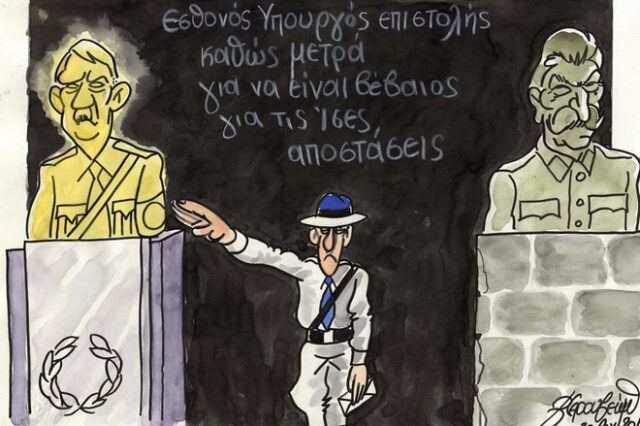 Εσθονός Υπουργός επιστολής
καθώς μετρά
για να είναι βέβαιος
για τις Ίσες
αποστάσεις